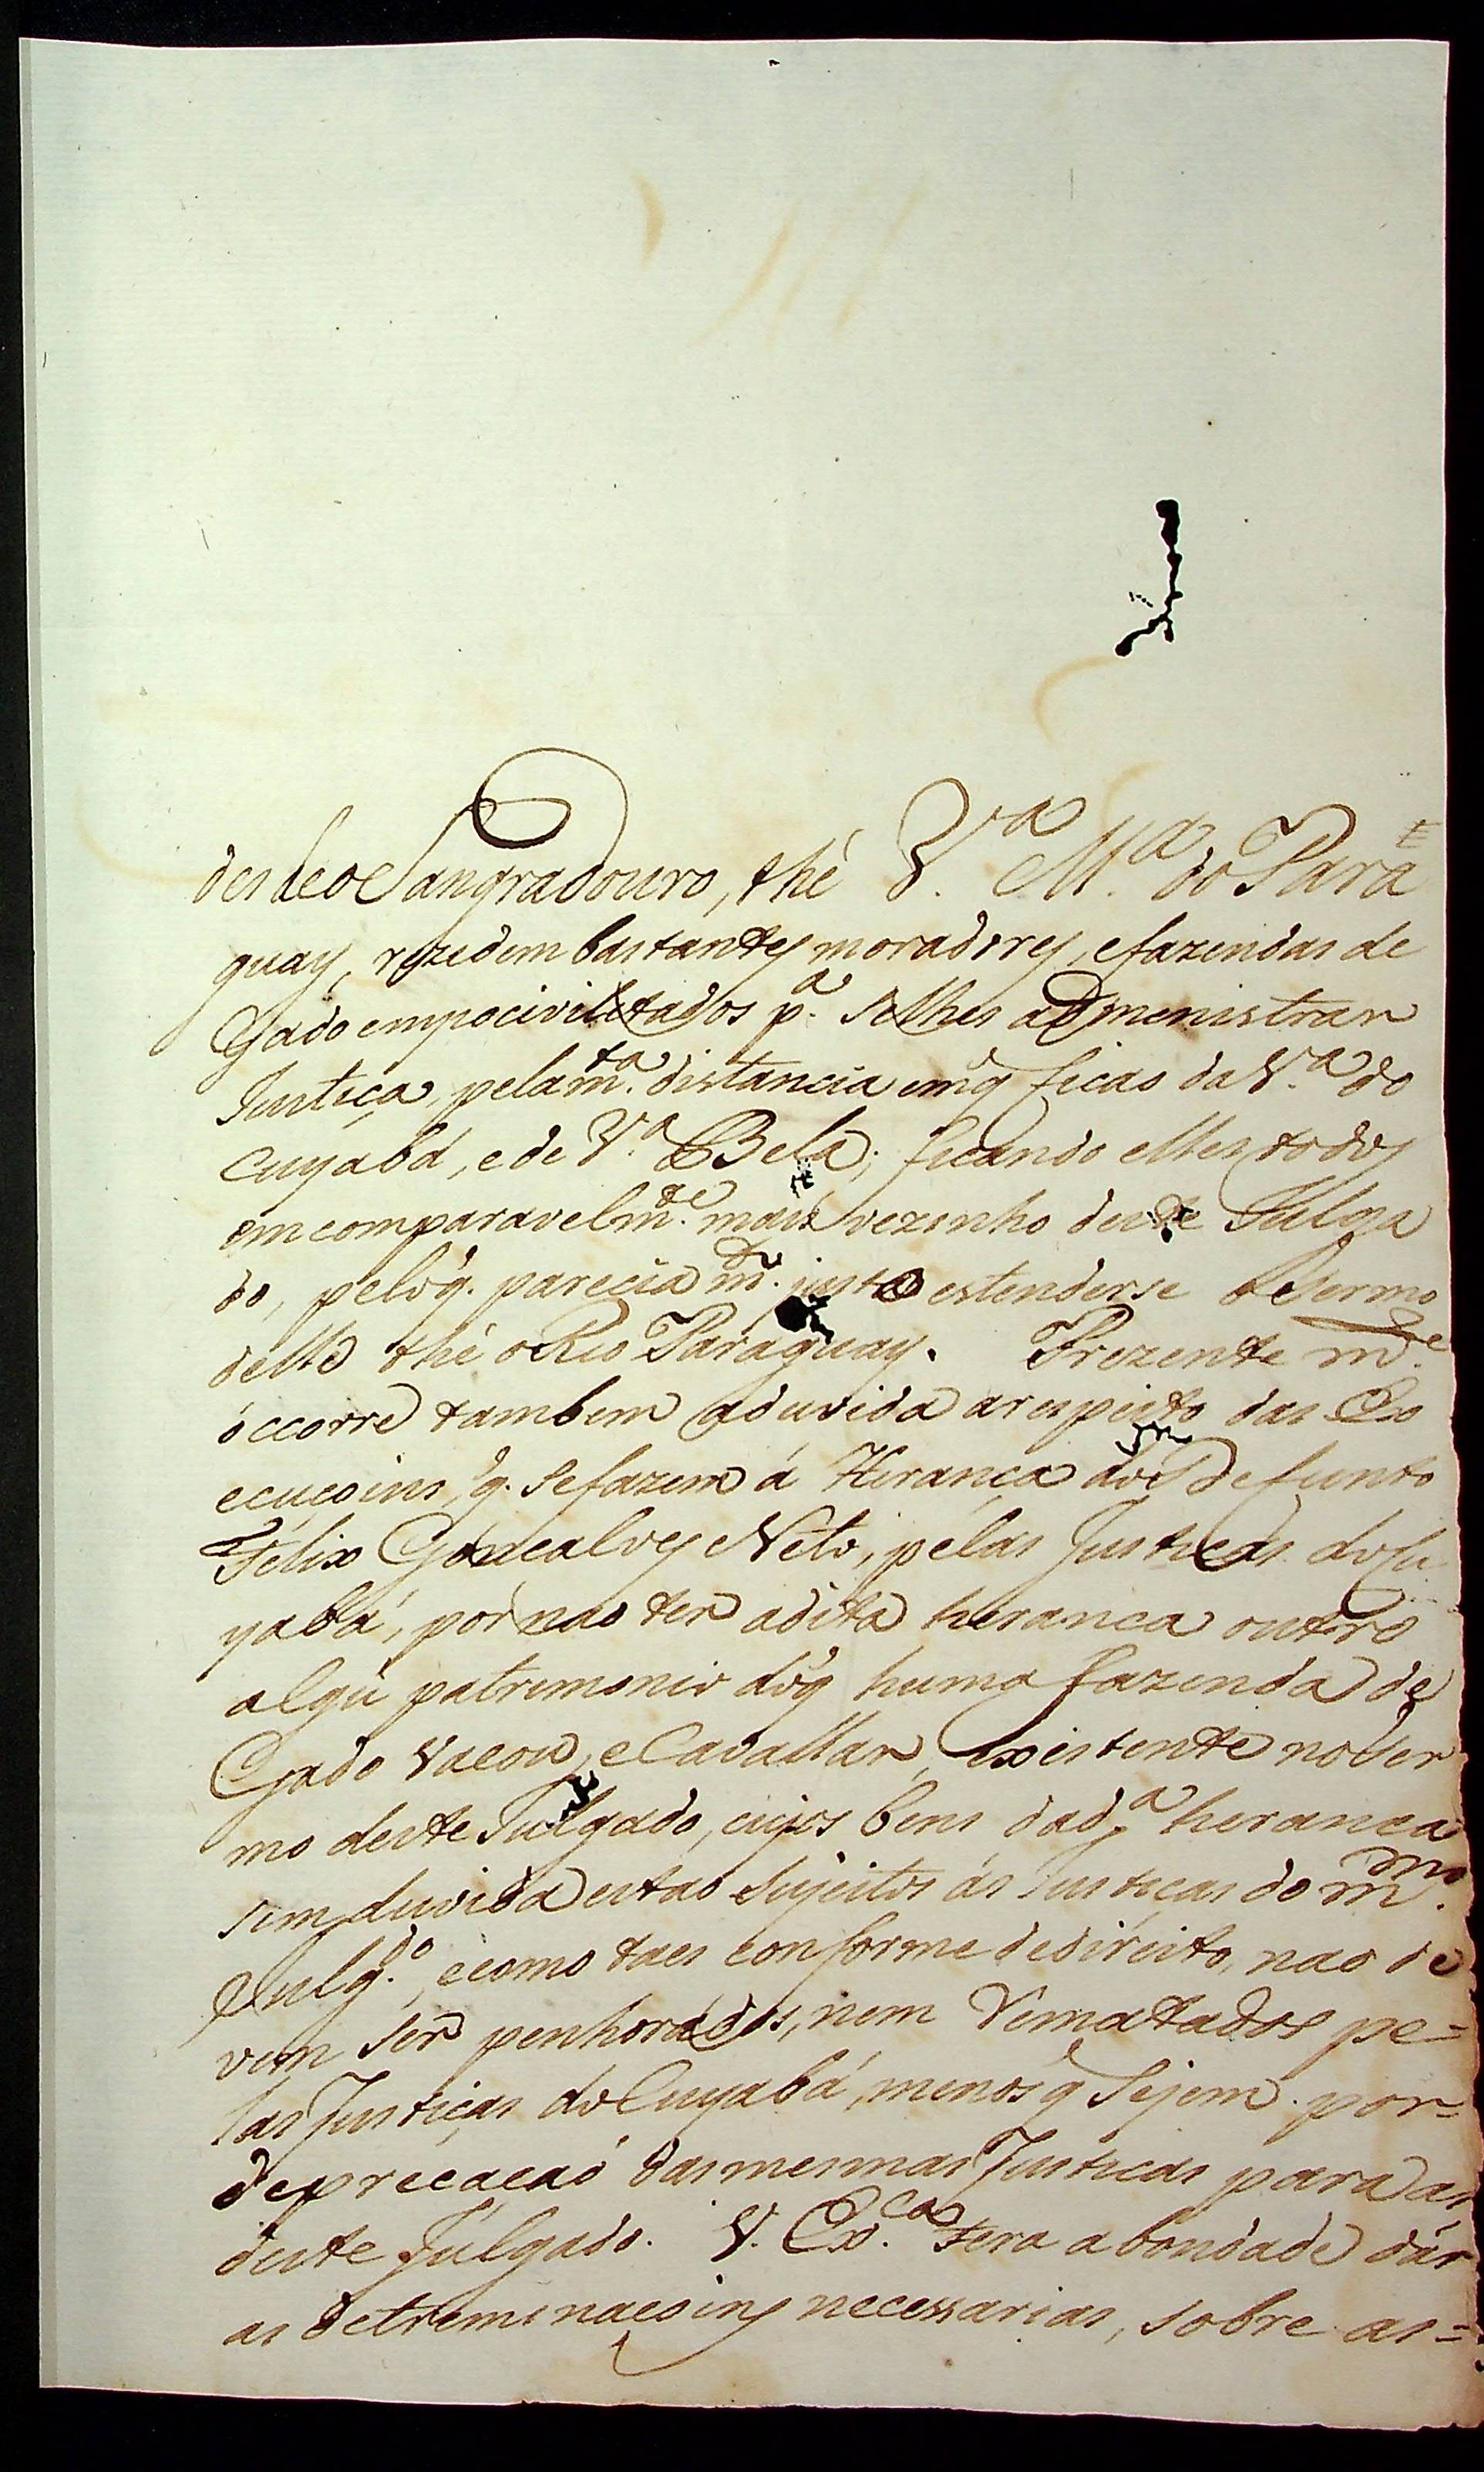 desdeoSangradouro, thé V.ª M.ª do Para
guay, rezedem bastantes moradores, efazendas de
Gado empocivilitados p.ª selhes administrar
Justiça, pelam.ta distancia emq̃ ficaõ da V.ª do
Cuyabá, ede V.ª Bela; ficando elles todos
emcomparavelm.te mais vezinho deste Julga
do, peloq̃. parecia m.to justo estenderse oTermo
delle thé oRio Paraguay. Prezente m.te
occorre tambem aduvida arespeito das Ex
ecuçoins, q̃. sefazem á Herança do Defunto
Felix Goncalves Neto, pelas Justicas doCu
yabá, por nao ter adita heranca outro
algũ patrimonio doq̃ huma fazenda de
Gado Vacou, eCavallar, existente noTer
mo deste Julgado, cujos bens dad.ª heranca
sem duvida estaõ Sujeitos ás Justiças do m.mo
Julg.do, ecomo taes conforme dedireito, nao de
vem ser penhorados, nem Rematados pe=
las Justiças doCuyabá, menos q̃ Sejem por=
deprecacaõ dasmesmasJusticas para as
deste Julgado. V. Ex.ca tera abondade dár
as detreminacoins necessarias, sobre as=